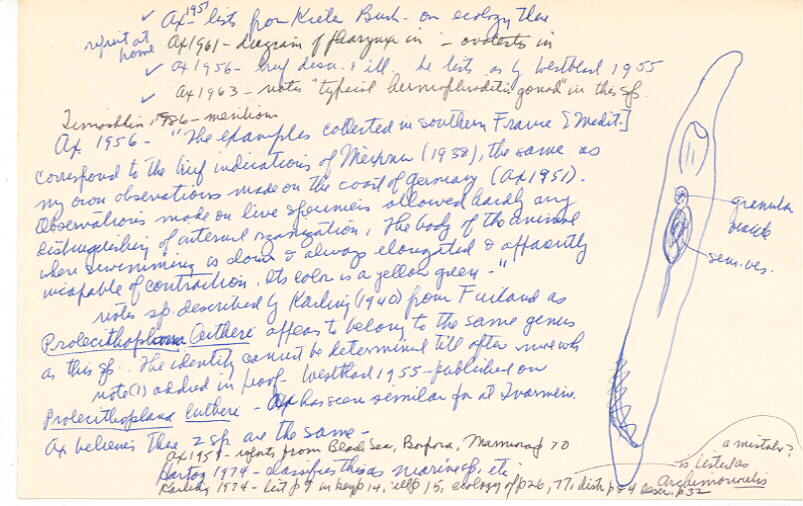 ✓ Ax 1951 - lists from Kieler Bush - on ecology there
reprint at home
Ax 1961 - diagram of pharynx in - ovotestis in
✓ Ax 1956 - brief desc. & ill. he lists as by Westblad 1955
✓ Ax 1963 - notes "typical hermaphroditic gonad" in this sp.
Timoshkin 1986 - mentions
Ax 1956 - "The examples collected in Southern France [Medit.]
correspond to the brief indications of Meixner (1938), the same as
my own observations made on the coast of Germany (Ax 1951).
Observations made on live specimens allowed hardly any
distinguishing of internal organization. The body of the animal
when swimming is slow & always elongated & apparently
incapable of contraction. Its color is a yellow green - "
notes sp. described by Karling (1940) from Finland as
Prolecithoplana lutheri appears to belong to the same genus
as this sp.. The identity cannot be determined till after more wk
note (1) added in proof - Westblad 1955 - published on
Prolecithoplana lutheri - Ax has seen similar for at Tvärminne.
Ax believes these 2 sp are the same -
Ax 1959 - reports from Black Sea, Bosfora, Marmora p 70
Hartog 1974 - classifies this as marine sp, etc.
Karling 1974 - list p 9 in key p 14, ill p 15, ecology of p 26, 77, dist p 34 descr. p 32
granular vesicle
sem. ves.
a mistake?
is listed as
Archimonocelis